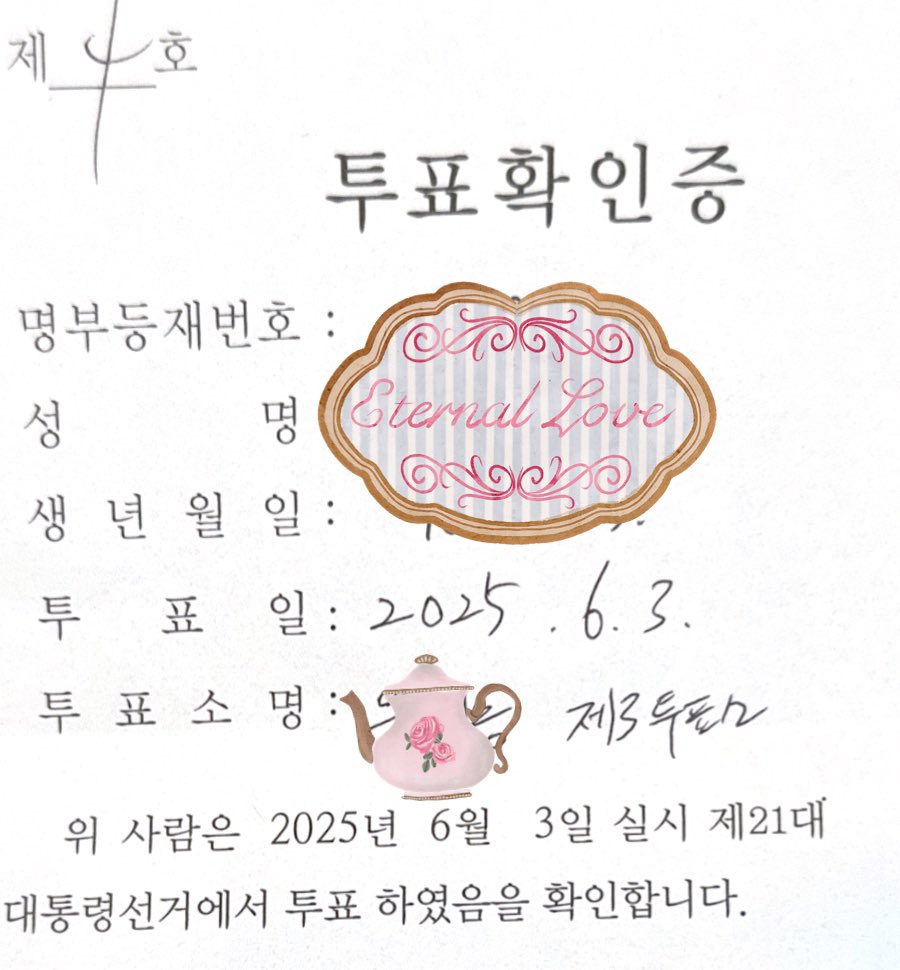 제 4 호
투표확인증
명부등재번호 :
Eternal Love
성 명
생 년 월 일 :
투 표 일 : 2025 . 6. 3.
투 표 소 명 : 제3투표소
위 사람은 2025년 6월 3일 실시 제21대
대통령선거에서 투표 하였음을 확인합니다.